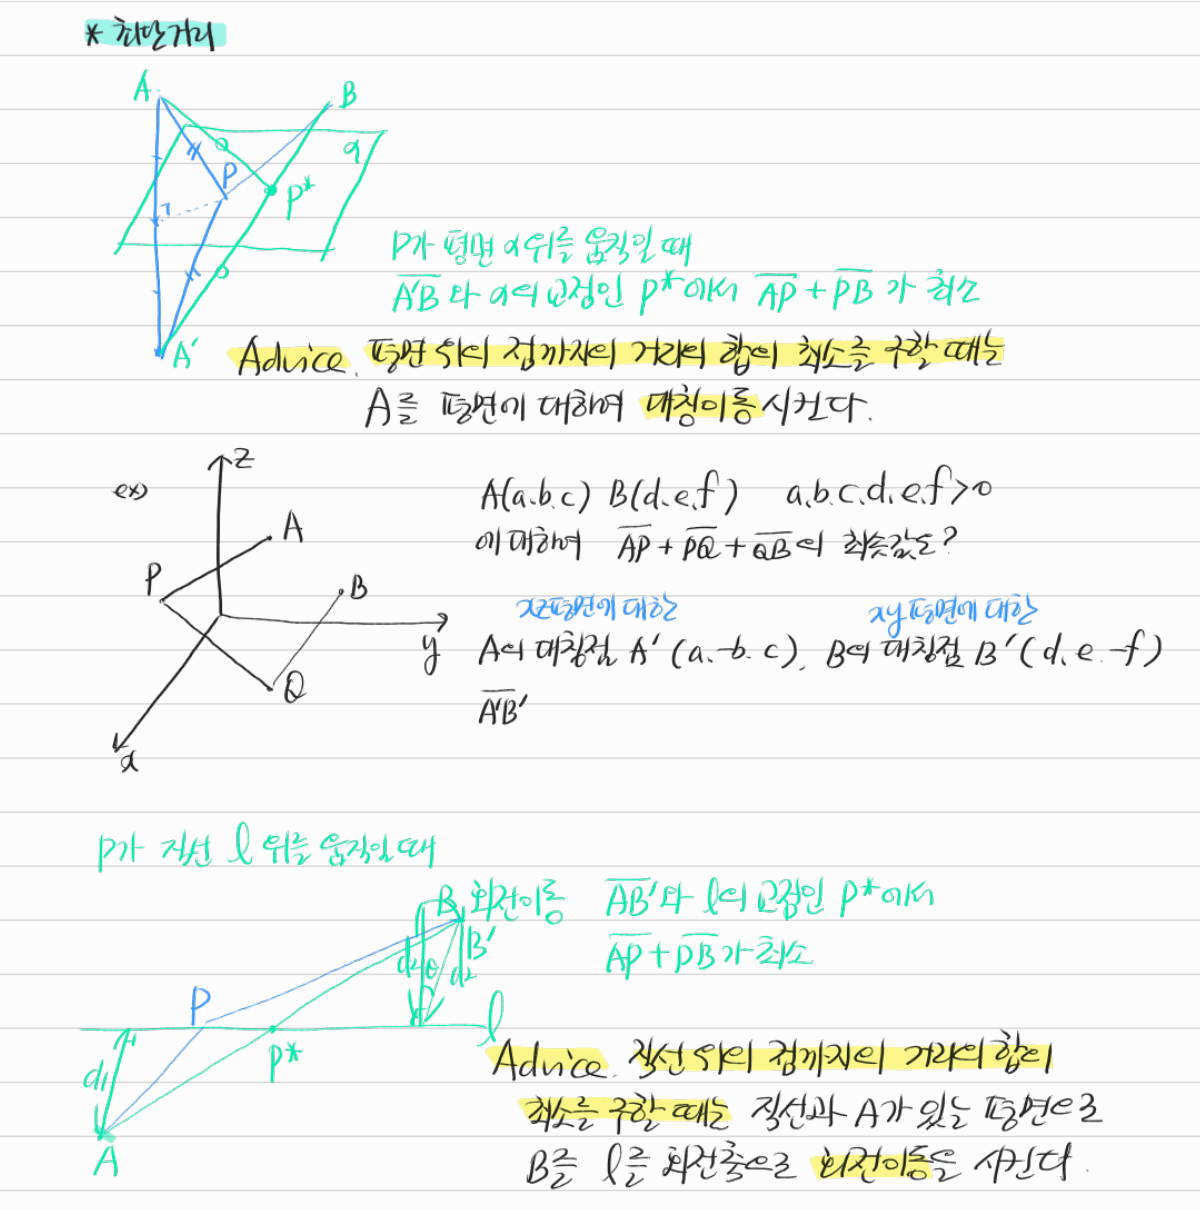 * 최단거리
A
B
α
P
P*
A'
P가 평면 α위를 움직일 때
A'B 와 α의 교점인 P*에서 AP + PB 가 최소
Advice. 평면 위의 점까지의 거리의 합의 최소를 구할 때는
A를 평면에 대하여 대칭이동 시킨다.
ex)
z
A
P
B
y
Q
x
A(a.b.c) B(d.e.f) a.b.c.d.e.f>0
에 대하여 AP + PQ + QB의 최솟값은?
xz평면에 대한
xy평면에 대한
A의 대칭점 A'(a.-b.c), B의 대칭점 B'(d.e.-f)
A'B'
P가 직선 l 위를 움직일 때
B 회전이동
AB'와 l의 교점인 P*에서
AP + PB가 최소
B'
d2
θ
d2
P
l
P*
d1
A
Advice. 직선 위의 점까지의 거리의 합의
최소를 구할 때는 직선과 A가 있는 평면으로
B를 l을 회전축으로 회전이동을 시킨다.